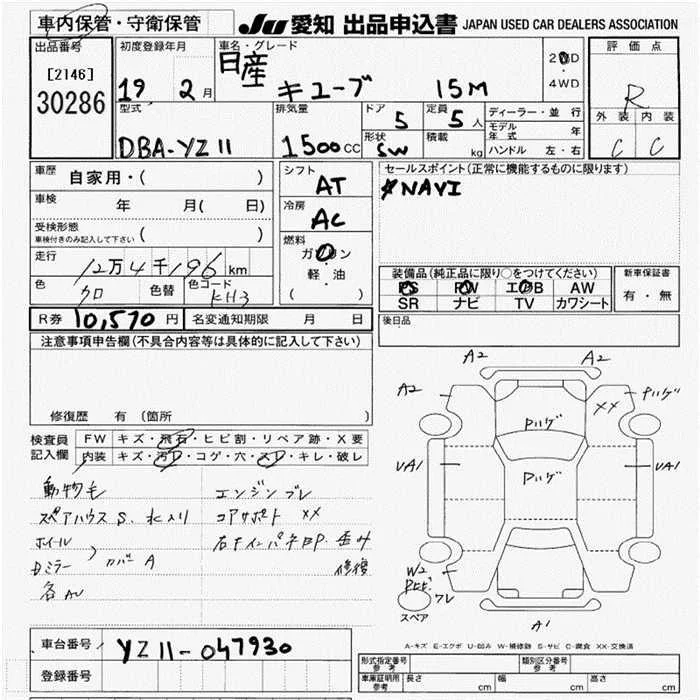 車内保管・守衛保管
JU 愛知 出品申込書 JAPAN USED CAR DEALERS ASSOCIATION
出品番号
[2146]
30286
初度登録年月
19 2月
車名・グレード
日産 キューブ 15M
2WD
4WD
評価点
R
外装 内装
C C
型式
DBA-YZ11
排気量
1500CC
ドア
5
定員
5人
形状
SW
積載
kg
ディーラー・並行
モデル年式 年
ハンドル 左・右
車歴
自家用・( )
車検
年 月( 日)
受検形態
車検付きのみ記入して下さい ( )
走行
12万4千196km
色
クロ
色替
色コード
KH3
シフト
AT
冷房
AC
燃料
ガソリン
軽・油
( )
セールスポイント(正常に機能するものに限ります)
NAVI
装備品(純正品に限り○をつけてください)
PS PW エアB AW
SR ナビ TV カワシート
新車保証書
有・無
R券 10,570円
名変通知期限 月 日
後日品
注意事項申告欄(不具合内容等は具体的に記入して下さい)
修復歴 有 (箇所 )
検査員記入欄
FW キズ・飛石・ヒビ割・リペア跡・X要
内装 キズ・汚れ・コゲ・穴・スレ・キレ・破レ
動物毛
スペアハウス S. 水入り
ホイール
Dミラー
カバー A
各AU
エンジンブレ
コアサポート XX
右Fインパネ BP. 歪み
修復
A2 A2
A2
XX
Pハゲ
Pハゲ
Pハゲ
UA1
UA1
W2
スペア
ワレ
A1
A・キズ E・エクボ U・凹み W・補修跡 S・サビ C・腐食 XX・交換済
車台番号 YZ11-047930
登録番号
形式指定番号
参考
類別区分番号
参考
車庫証明用
参考
長さ cm
幅 cm
高さ cm